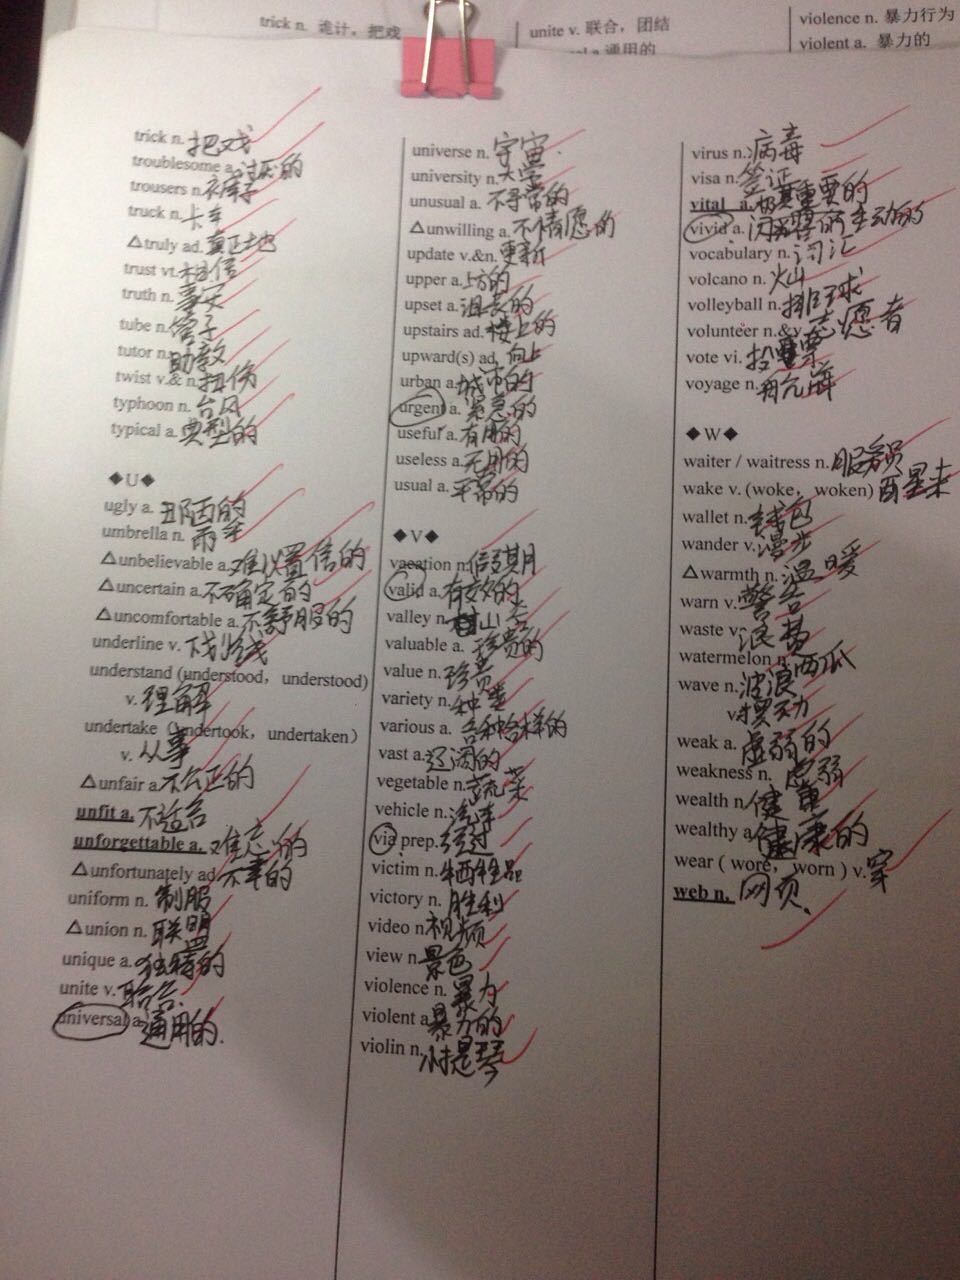 trick n. 诡计，把戏
unite v. 联合，团结
a 通用的
violence n. 暴力行为
violent a. 暴力的
trick n. 把戏
troublesome a. 讨厌的
trousers n. 裤子
truck n. 卡车
△truly ad. 真正地
trust vt. 相信
truth n. 事实
tube n. 管子
tutor n. 助教
twist v.& n. 扭伤
typhoon n. 台风
typical a. 典型的
◆U◆
ugly a. 丑陋的
umbrella n. 雨伞
△unbelievable a. 难以置信的
△uncertain a. 不确定的
△uncomfortable a. 不舒服的
underline v. 下划线
understand (understood，understood)
v. 理解
undertake（undertook，undertaken）
v. 从事
△unfair a. 不公正的
unfit a. 不适合
unforgettable a. 难忘的
△unfortunately ad. 不幸的
uniform n. 制服
△union n. 联盟
unique a. 独特的
unite v. 联合
universal a. 通用的.
universe n. 宇宙.
university n. 大学
unusual a. 不寻常的
△unwilling a. 不情愿的
update v.&n. 更新
upper a. 上方的
upset a. 沮丧的
upstairs ad. 楼上的
upward(s) ad. 向上
urban a. 城市的
urgent a. 紧急的
useful a. 有用的
useless a. 无用的
usual a. 平常的
◆V◆
vacation n. 假期
valid a. 有效的
valley n. 山谷
valuable a. 珍贵的
value n. 珍贵
variety n. 种类
various a. 各种各样的
vast a. 辽阔的
vegetable n. 蔬菜
vehicle n. 汽车
via prep. 经过
victim n. 牺牲品
victory n. 胜利
video n. 视频
view n. 景色
violence n. 暴力
violent a. 暴力的
violin n. 小提琴
virus n. 病毒
visa n. 签证
vital a. 极其重要的
vivid a. 生动的
vocabulary n. 词汇
volcano n. 火山
volleyball n. 排球
volunteer n.&v. 志愿者
vote vi. 投票
voyage n. 航海
◆W◆
waiter / waitress n. 服务员
wake v. (woke，woken) 醒来
wallet n. 钱包
wander v. 漫步
△warmth n. 温暖
warn v. 警告
waste v. 浪费
watermelon n. 西瓜
wave n. 波浪
v. 摆动
weak a. 虚弱的
weakness n. 虚弱
wealth n. 健康
wealthy a. 健康的
wear ( wore，worn ) v. 穿
web n. 网页.